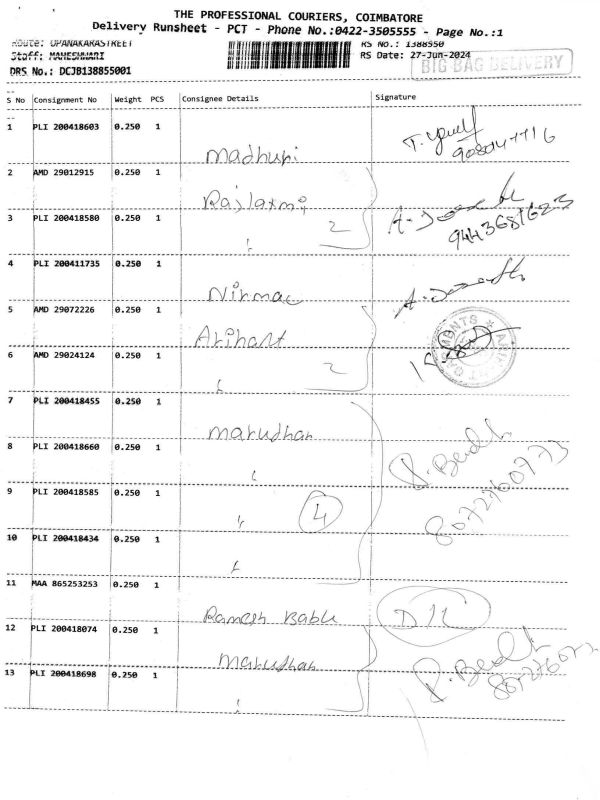 THE PROFESSIONAL COURIERS, COIMBATORE
Delivery Runsheet - PCT - Phone No.:0422-3505555 - Page No.:1
Route: OPANAKARASTREET
RS No.: 1388550
Staff: MAHESHWARI
RS Date: 27-Jun-2024
BIG BAG DELIVERY
DRS No.: DCJB138855001
S No Consignment No Weight PCS Consignee Details Signature
1 PLI 200418603 0.250 1
Madhuri
2 AMD 29012915 0.250 1
Rajlaxmi
3 PLI 200418580 0.250 1
2
4 PLI 200411735 0.250 1
Nirmal
5 AMD 29072226 0.250 1
Arihant
6 AMD 29024124 0.250 1
2
ARIHANT GARMENTS
7 PLI 200418455 0.250 1
Marudhar
8 PLI 200418660 0.250 1
9 PLI 200418585 0.250 1
4
8072760773
10 PLI 200418434 0.250 1
11 MAA 865253253 0.250 1
Ramesh Babu
12 PLI 200418074 0.250 1
Marudhar
13 PLI 200418698 0.250 1